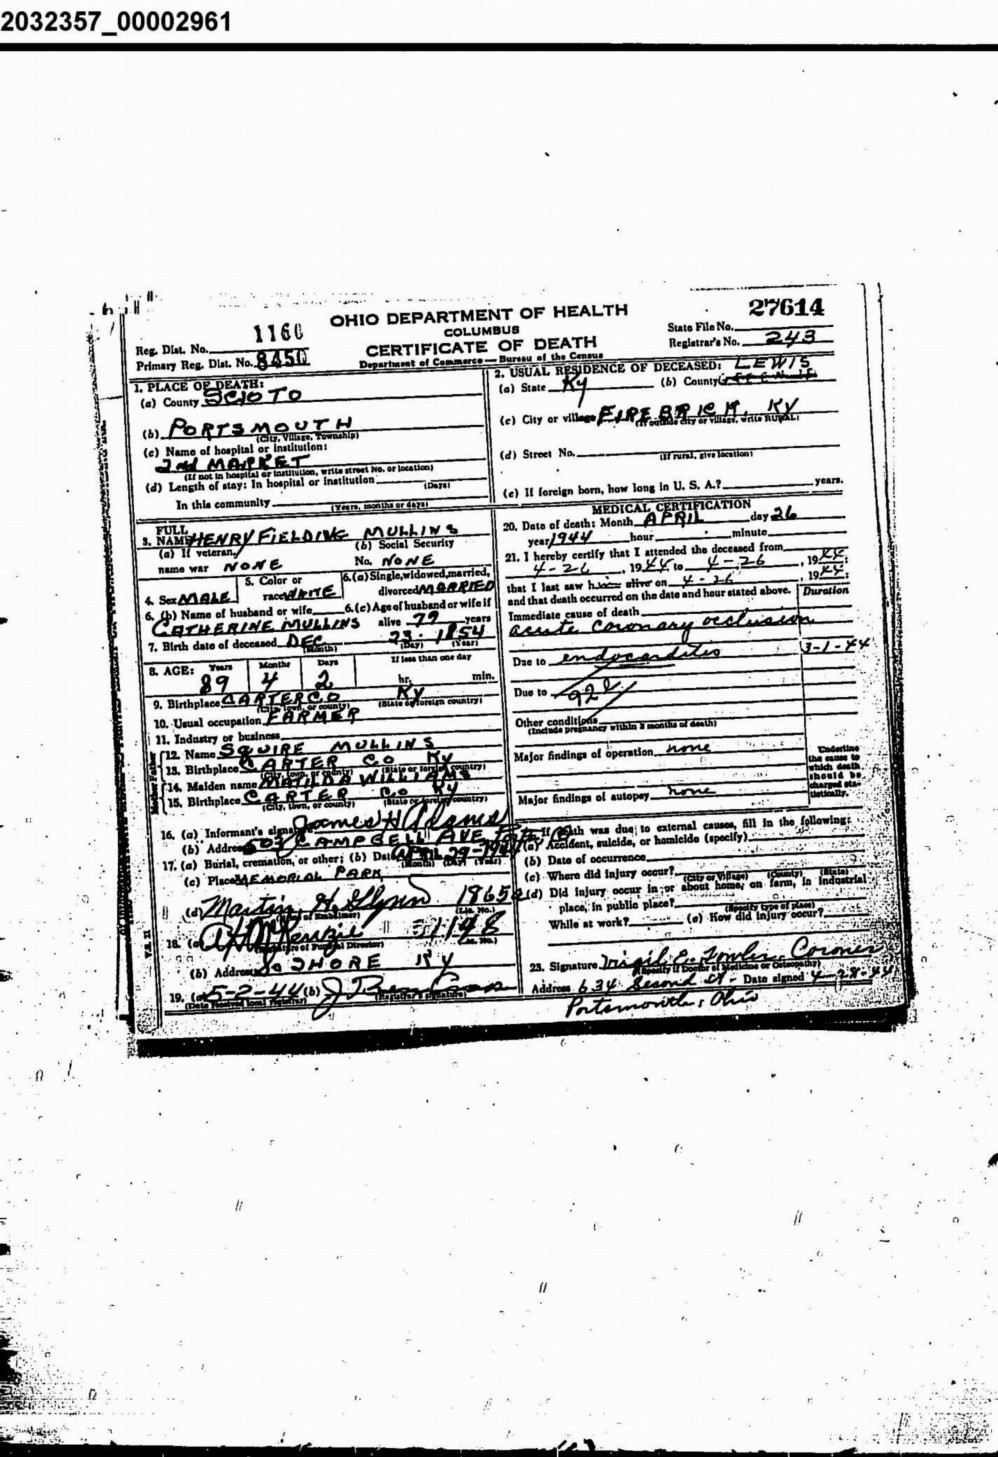 2032357_00002961
OHIO DEPARTMENT OF HEALTH
COLUMBUS
CERTIFICATE OF DEATH
Department of Commerce — Bureau of the Census
Reg. Dist. No. 1160
Primary Reg. Dist. No. 8450
27614
State File No.
Registrar's No. 243
1. PLACE OF DEATH:
(a) County SCIOTO
(b) PORTSMOUTH
(City, Village, Township)
(c) Name of hospital or institution:
2nd MARKET
(If not in hospital or institution, write street No. or location)
(d) Length of stay: In hospital or institution
(Days)
In this community
(Years, months or days)
2. USUAL RESIDENCE OF DECEASED: LEWIS
(a) State Ky (b) County
(c) City or village FIREBRICK, KY
(If outside city or village, write RURAL)
(d) Street No.
(If rural, give location)
(e) If foreign born, how long in U. S. A.? years.
3. FULL NAME HENRY FIELDING MULLINS
(a) If veteran, name war NONE
(b) Social Security No. NONE
4. Sex MALE
5. Color or race WHITE
6. (a) Single, widowed, married, divorced MARRIED
6. (b) Name of husband or wife CATHERINE MULLINS
6. (c) Age of husband or wife if alive 79 years
7. Birth date of deceased DEC 23 1854
(Month) (Day) (Year)
8. AGE: Years Months Days If less than one day
89 4 2 hr. min.
9. Birthplace CARTER CO KY
(City, town, or county) (State or foreign country)
10. Usual occupation FARMER
11. Industry or business
12. Name SQUIRE MULLINS
13. Birthplace CARTER CO KY
(City, town, or county) (State or foreign country)
14. Maiden name MATILDA WILLIAMS
15. Birthplace CARTER CO KY
(City, town, or county) (State or foreign country)
16. (a) Informant's signature James H Adams
(b) Address 503 CAMPBELL AVE
17. (a) Burial, cremation, or other; (b) Date APRIL 29-1944
(Month) (Day) (Year)
(c) Place MEMORIAL PARK
(d) Martin H. Glynn 1865
(Signature of Embalmer) (Lic. No.)
18. (a) McKenzie
(Signature of Funeral Director) (Lic. No.)
(b) Address So SHORE KY
19. (a) 5-2-44 (b)
(Date received local registrar) (Registrar's signature)
MEDICAL CERTIFICATION
20. Date of death: Month APRIL day 26
year 1944 hour minute
21. I hereby certify that I attended the deceased from
4-26, 1944 to 4-26, 1944;
that I last saw him alive on 4-26, 1944;
and that death occurred on the date and hour stated above.
Duration
Immediate cause of death
acute coronary occlusion
Due to endocarditis 3-1-44
Due to
Other conditions
(Include pregnancy within 3 months of death)
Major findings of operation none
Major findings of autopsy none
Underline the cause to which death should be charged statistically.
22. If death was due to external causes, fill in the following:
(a) Accident, suicide, or homicide (specify)
(b) Date of occurrence
(c) Where did injury occur?
(City or Village) (County) (State)
(d) Did injury occur in or about home, on farm, in industrial
place, in public place?
(Specify type of place)
While at work? (e) How did injury occur?
23. Signature Virgil E. Fowler Coroner
(Specify if Doctor of Medicine or Osteopathy)
Address 634 Second St - Date signed 4-28-44
Portsmouth, Ohio